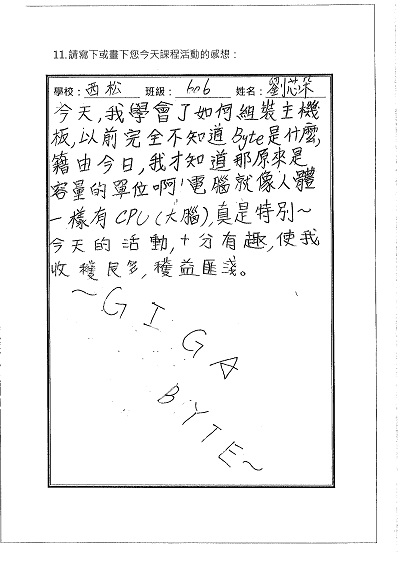 11.請寫下或畫下您今天課程活動的感想：
學校：西松 班級：606 姓名：劉芯
今天,我學會了如何組裝主機
板,以前完全不知道Byte是什麼,
籍由今日,我才知道那原來是
容量的單位啊!電腦就像人體
一樣有CPU(大腦),真是特別~
今天的活動,十分有趣,使我
收穫良多,穫益匪淺。
~GIGA
BYTE~